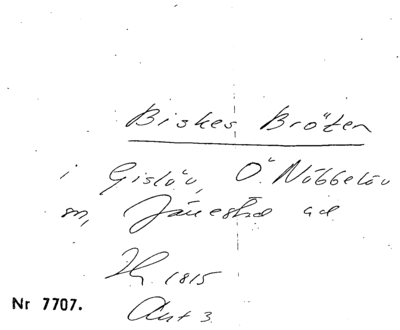 Biskes Bröten
i Gislöv, Ö. Nöbbelöv
sn, Järrestad
1815
Nr 7707.
Ant 3.